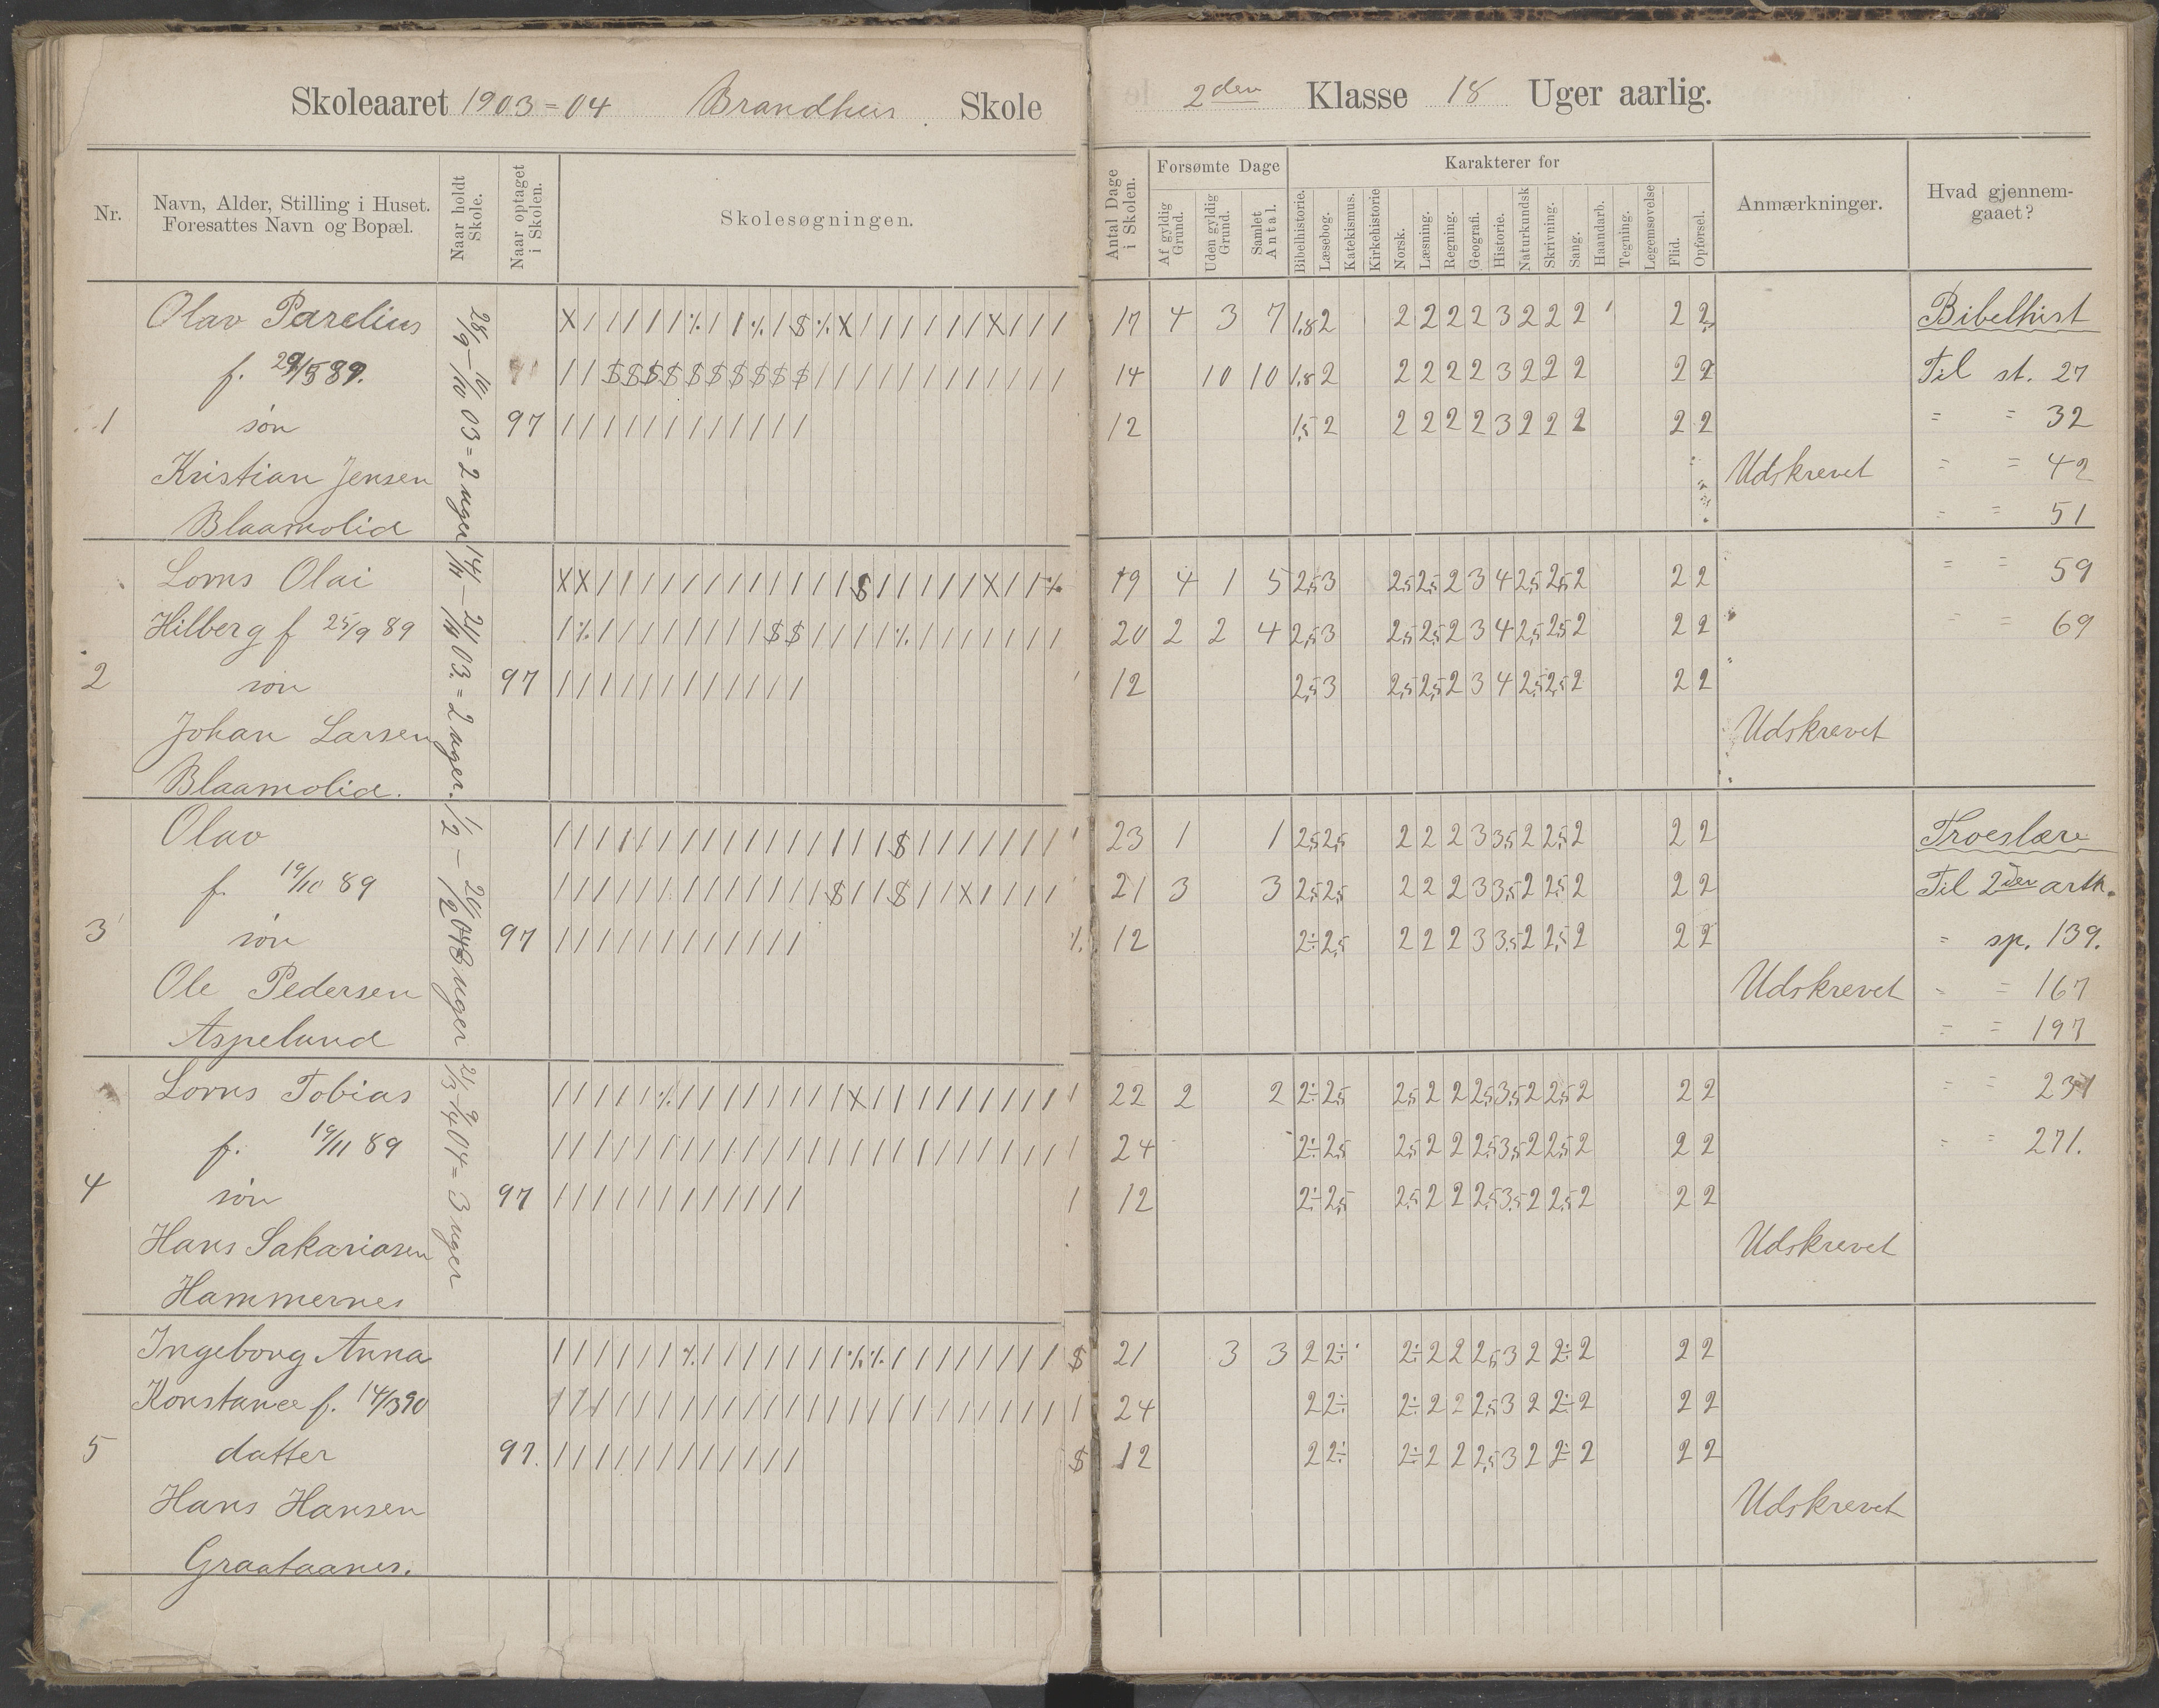 Skoleaaret 1903=04 Brandhus Skole
2den Klasse 18 Uger aarlig.
Nr.
Navn, Alder, Stilling i Huset. Foresattes Navn og Bopæl.
Naar holdt Skole.
Naar optaget i Skolen.
Skolesøgningen.
Antal Dage i Skolen.
Forsømte Dage
Af gyldig Grund.
Uden gyldig Grund.
Samlet Antal.
Karakterer for
Bibelhistorie.
Læsebog.
Katekismus.
Kirkehistorie
Norsk.
Læsning.
Regning.
Geografi.
Historie.
Naturkundsk
Skrivning.
Sang.
Haandarb.
Tegning.
Legemsøvelse
Flid.
Opførsel.
Anmærkninger.
Hvad gjennemgaaet?
28/9 - 10/10 03 = 2 uger
1
Olav Parelius
f. 29/5 89.
søn
Kristian Jensen
Blaamolid
97
17 4 3 7 1.8 2 2 2 2 2 3 2 2 2 2 2
14 10 10 1.8 2 2 2 2 2 3 2 2 2 2 2
12 1,5 2 2 2 2 2 3 2 2 2 2 2
Udskrevet
Bibelhist
Til st. 27
= = 32
= = 42
= = 51
2
Lorns Olai
Hilberg f 25/9 89
søn
Johan Larsen
Blaamolid.
97
19 4 1 5 2,5 3 2,5 2,5 2 3 4 2,5 2,5 2 2 2
20 2 2 4 2,5 3 2,5 2,5 2 3 4 2,5 2,5 2 2 2
12 2,5 3 2,5 2,5 2 3 4 2,5 2,5 2 2 2
Udskrevet
= = 59
= = 69
3
Olav
f. 19/10 89
søn
Ole Pedersen
Aspelund
97
23 1 1 2,5 2,5 2 2 2 3 3,5 2 2,5 2 2 2
21 3 3 2,5 2,5 2 2 2 3 3,5 2 2,5 2 2 2
12 2÷ 2,5 2 2 2 3 3,5 2 2,5 2 2 2
Udskrevet
Troeslære
Til 2den artk.
= sp. 139.
= = 167
= = 197
4
Lorns Tobias
f. 19/11 89
søn
Hans Sakariasen
Hammernes
97
22 2 2 2÷ 2,5 2,5 2 2 2,5 3,5 2 2,5 2 2 2
24 2÷ 2,5 2,5 2 2 2,5 3,5 2 2,5 2 2 2
12 2÷ 2,5 2,5 2 2 2,5 3,5 2 2,5 2 2 2
Udskrevet
= = 231
= = 271.
5
Ingeborg Anna
Konstance f. 14/3 90
datter
Hans Hansen
Graataanes.
97.
21 3 3 2 2÷ 2÷ 2 2 2,5 3 2 2÷ 2 2 2
24 2 2÷ 2÷ 2 2 2,5 3 2 2÷ 2 2 2
12 2 2÷ 2÷ 2 2 2,5 3 2 2÷ 2 2 2
Udskrevet